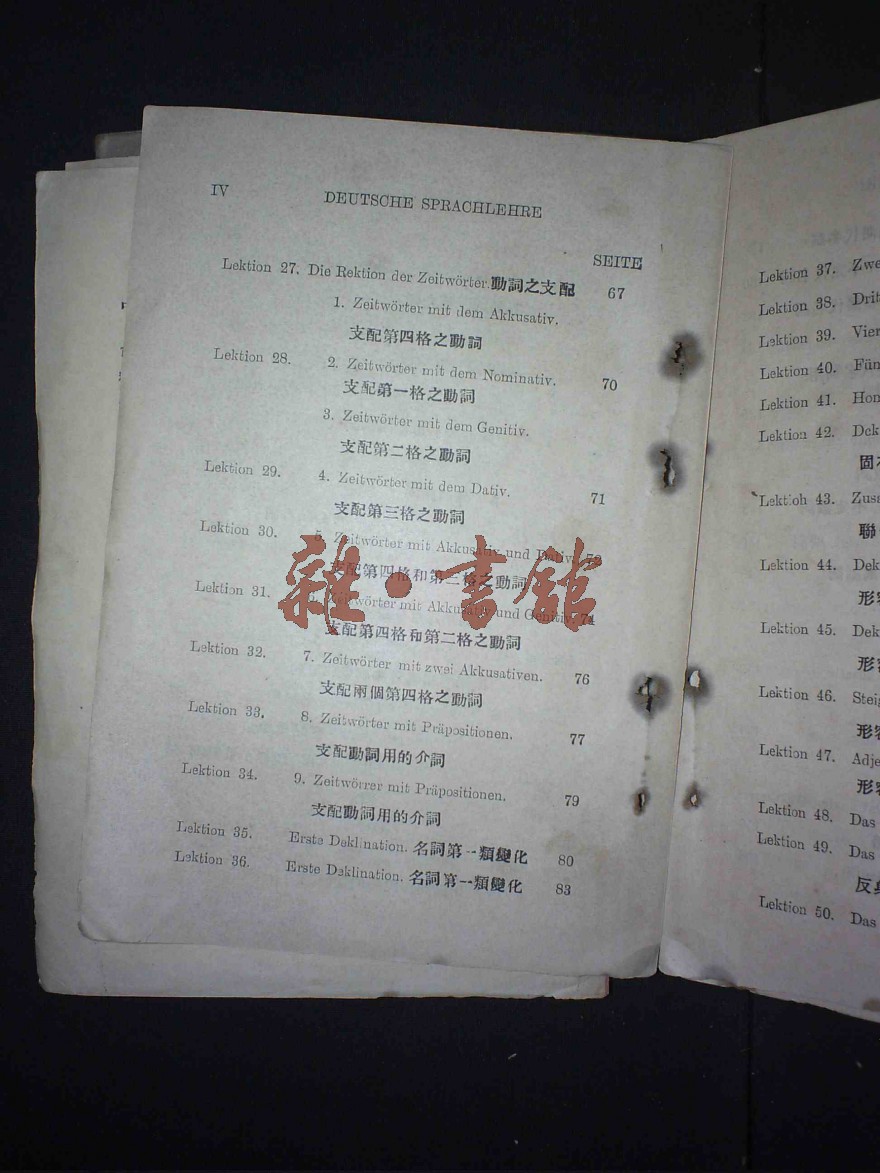 IV DEUTSCHE SPRACHLEHRE
SEITE
Lektion 27. Die Rektion der Zeitwörter.動詞之支配 67
1. Zeitwörter mit dem Akkusativ.
支配第四格之動詞
Lektion 28. 2. Zeitwörter mit dem Nominativ. 70
支配第一格之動詞
3. Zeitwörter mit dem Genitiv.
支配第二格之動詞
Lektion 29. 4. Zeitwörter mit dem Dativ. 71
支配第三格之動詞
Lektion 30. 5. Zeitwörter mit Akkusativ und Dativ
支配第四格和第三格之動詞
Lektion 31. Zeitwörter mit Akkusativ und Genitiv 74
支配第四格和第二格之動詞
Lektion 32. 7. Zeitwörter mit zwei Akkusativen. 76
支配兩個第四格之動詞
Lektion 33. 8. Zeitwörter mit Präpositionen. 77
支配動詞用的介詞
Lektion 34. 9. Zeitwörrer mit Präpositionen. 79
支配動詞用的介詞
Lektion 35. Erste Deklination. 名詞第一類變化 80
Lektion 36. Erste Deklination. 名詞第一類變化 83
雜·書館
Lektion 37. Zwe
Lektion 38. Drit
Lektion 39. Vier
Lektion 40. Fün
Lektion 41. Hom
Lektion 42. Dek
固有
Lektioh 43. Zusa
聯
Lektion 44. Dek
形容
Lektion 45. Dek
形容
Lektion 46. Steig
形容
Lektion 47. Adje
形容
Lektion 48. Das
Lektion 49. Das
反身
Lektion 50. Das